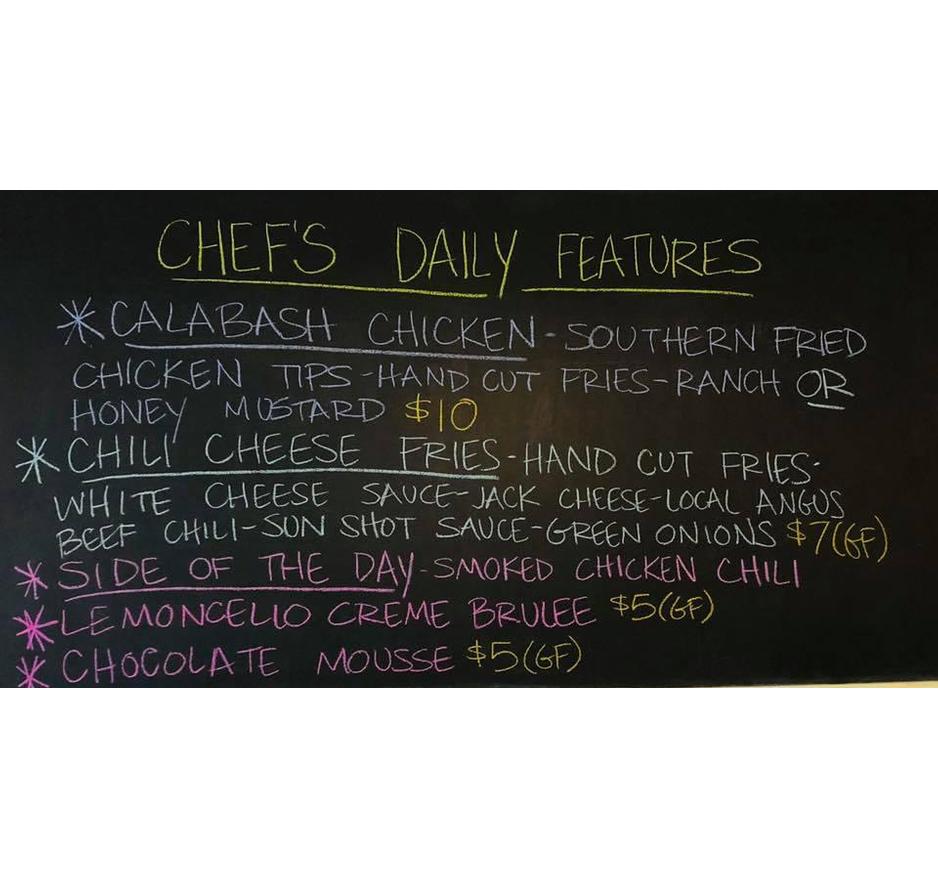 CHEF'S DAILY FEATURES
* CALABASH CHICKEN - SOUTHERN FRIED
CHICKEN TIPS - HAND CUT FRIES - RANCH OR
HONEY MUSTARD $10
* CHILI CHEESE FRIES - HAND CUT FRIES -
WHITE CHEESE SAUCE - JACK CHEESE - LOCAL ANGUS
BEEF CHILI - SUN SHOT SAUCE - GREEN ONIONS $7 (GF)
* SIDE OF THE DAY - SMOKED CHICKEN CHILI
* LEMONCELLO CREME BRULEE $5 (GF)
* CHOCOLATE MOUSSE $5 (GF)